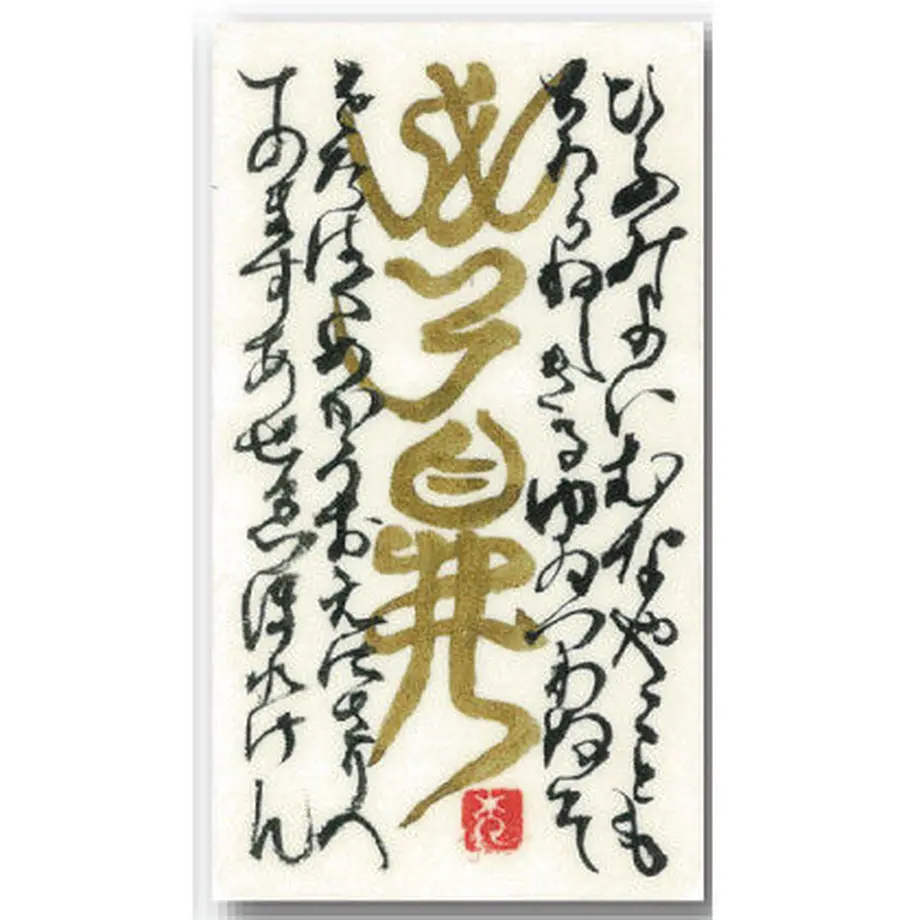 ひふみよいむなやことも
ちろらねしきるゆゐつわぬそ
をたはくめかうおえにさりへ
てのますあせゑほれけん